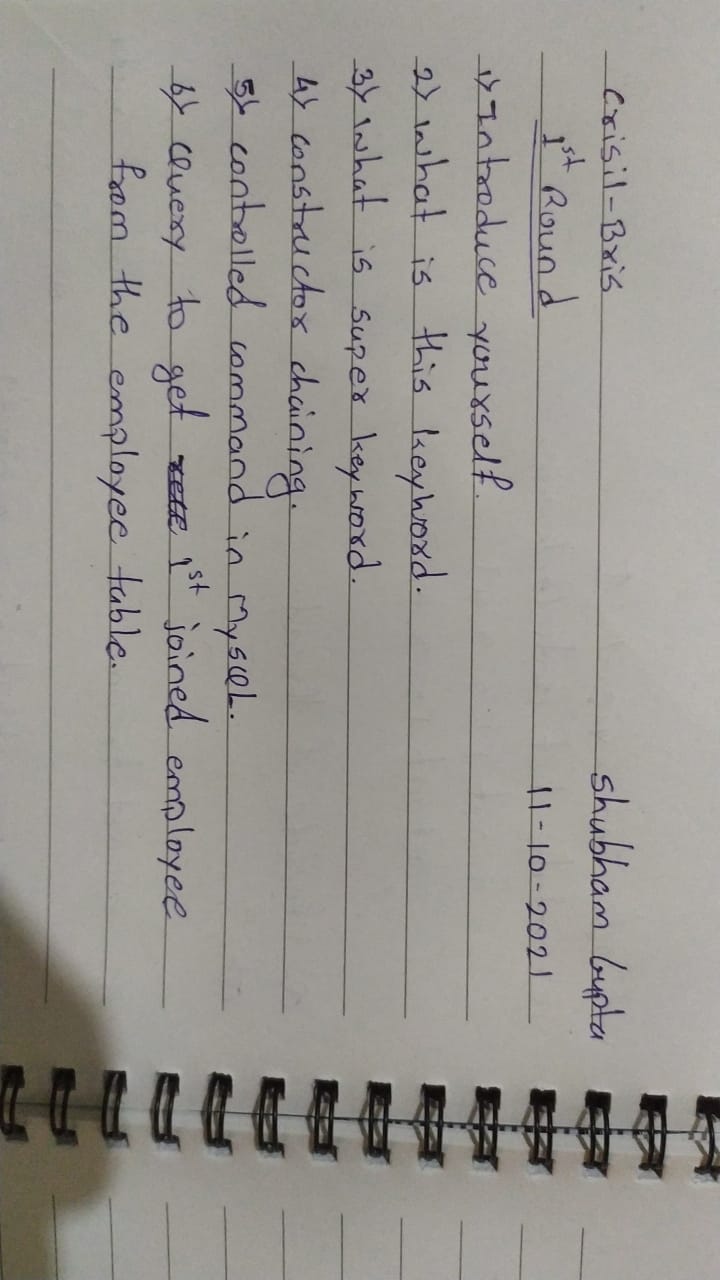 Crisil-Bris
Shubham Gupta
1st Round
11-10-2021
1) Introduce yourself.
2) What is this keyword.
3) What is super keyword.
4) constructor chaining.
5) controlled command in MySQL.
6) Query to get 1st joined employee
from the employee table.